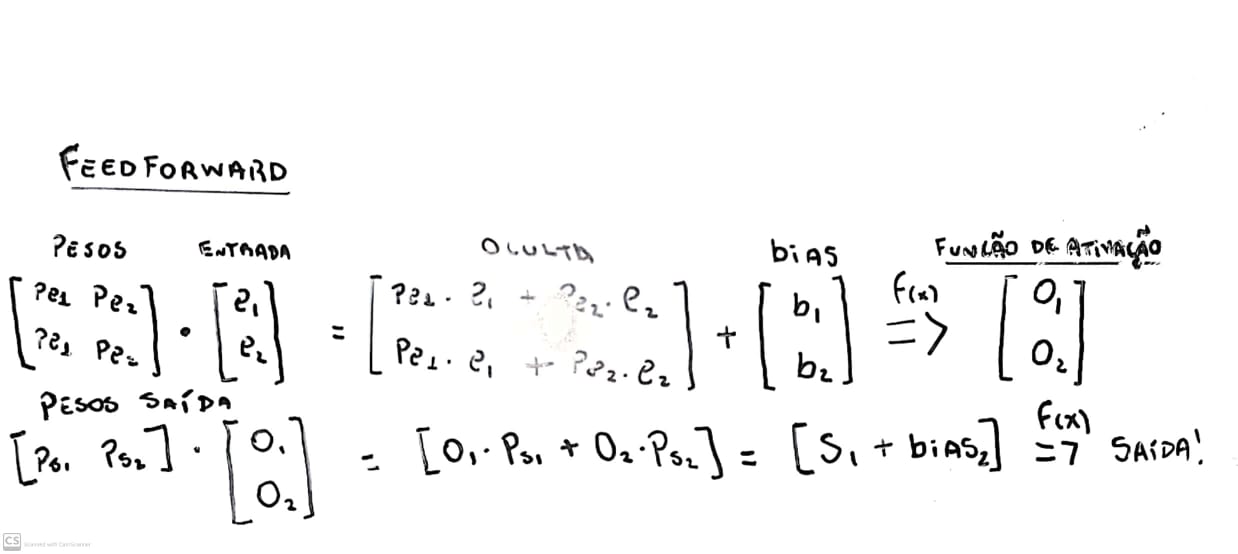 FEEDFORWARD
PESOS ENTRADA OCULTA bias FUNÇÃO DE ATIVAÇÃO
[Pe1 Pe2] [e1] [Pe1 · e1 + Pe2 · e2] [b1] f(x) [O1]
[Pe1 Pe2] · [e2] = [Pe1 · e1 + Pe2 · e2] + [b2] => [O2]
PESOS SAÍDA
[Ps1 Ps2] · [O1 O2] = [O1 · Ps1 + O2 · Ps2] = [S1 + bias2] f(x) => SAíDA!
CS Scanned with CamScanner